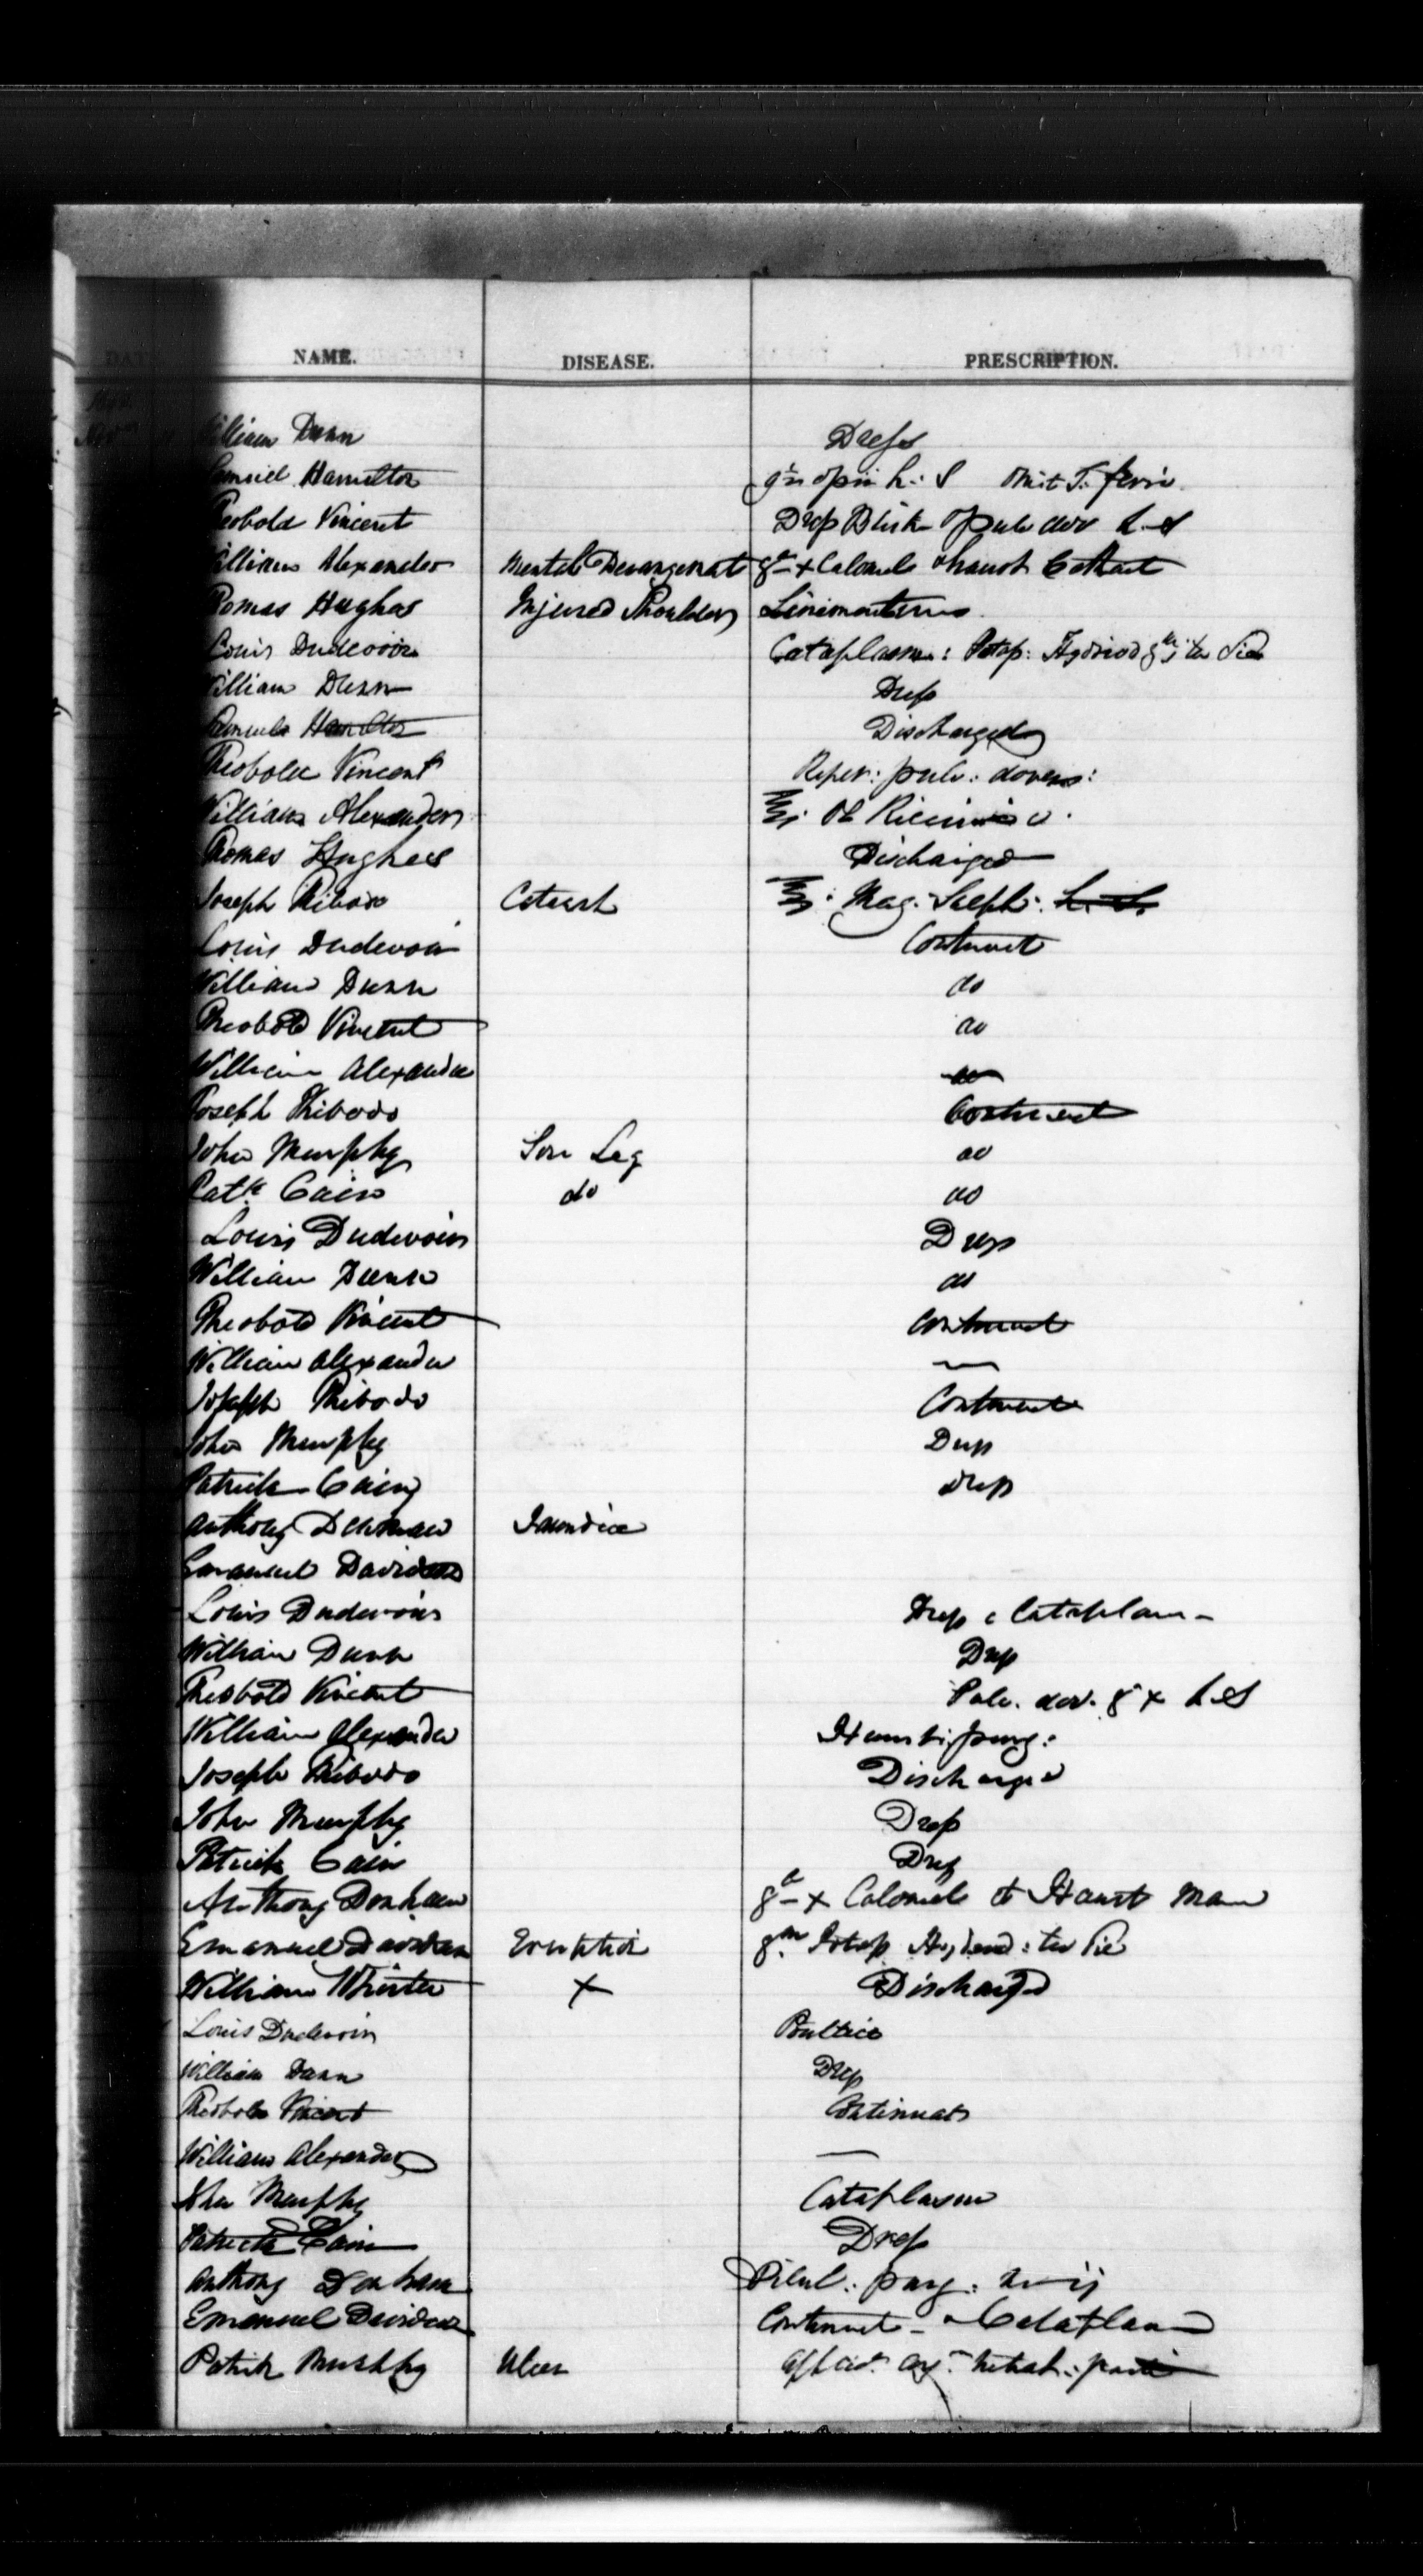 NAME. DISEASE. PRESCRIPTION.
William Dunn Dress
Samuel Hamilton opii h: S omit T. ferri
Theobold Vincent Drep pulv dov h-S
William Alexander Mental Derangement gr x Calomel haust Cathart
Thomas Hughes Injured Shoulder Linimentum
Louis Dudevoir Cataplasm: Potap: Hydriod ter die
William Dunn Drep
Samuel Hamilton Discharged
Theobold Vincent Repet: pulv: doveri:
William Alexander Ol Ricini
Thomas Hughes Discharged
Joseph Thibodo Catarrh Mag. Sulph: h. S.
Louis Dudevoir Continuat
William Dunn do
Theobold Vincent do
William Alexander do
Joseph Thibodo Continuat
John Murphy Sore Leg do
Patk Cain do do
Louis Dudevoir Drep
William Dunn do
Theobold Vincent Continuat
William Alexander —
Joseph Thibodo Continuat
John Murphy Drep
Patrick Cain Drep
Anthony Jaundice
Emanuel Davidson
Louis Dudevoir Drep c Cataplasm
William Dunn Drep
Theobold Vincent Pulv. dov. g x h.S
William Alexander Haust: purg:
Joseph Thibodo Discharged
John Murphy Drep
Patrick Cain Drep
Anthony Denham gr x Calomel et Haust Mane
Emanuel Davidson Eruption Potap Hydriod: ter die
William Whister x Discharged
Louis Dudevoir Poultice
William Dunn Drep
Theobold Vincent Continuat
William Alexander —
John Murphy Cataplasm
Patrick Cain Drep
Anthony Denham Pilul: purg: No ij
Emanuel Davidson Continuat - Cataplasm
Patrick Murphy Ulcer arg: nitrat: parti